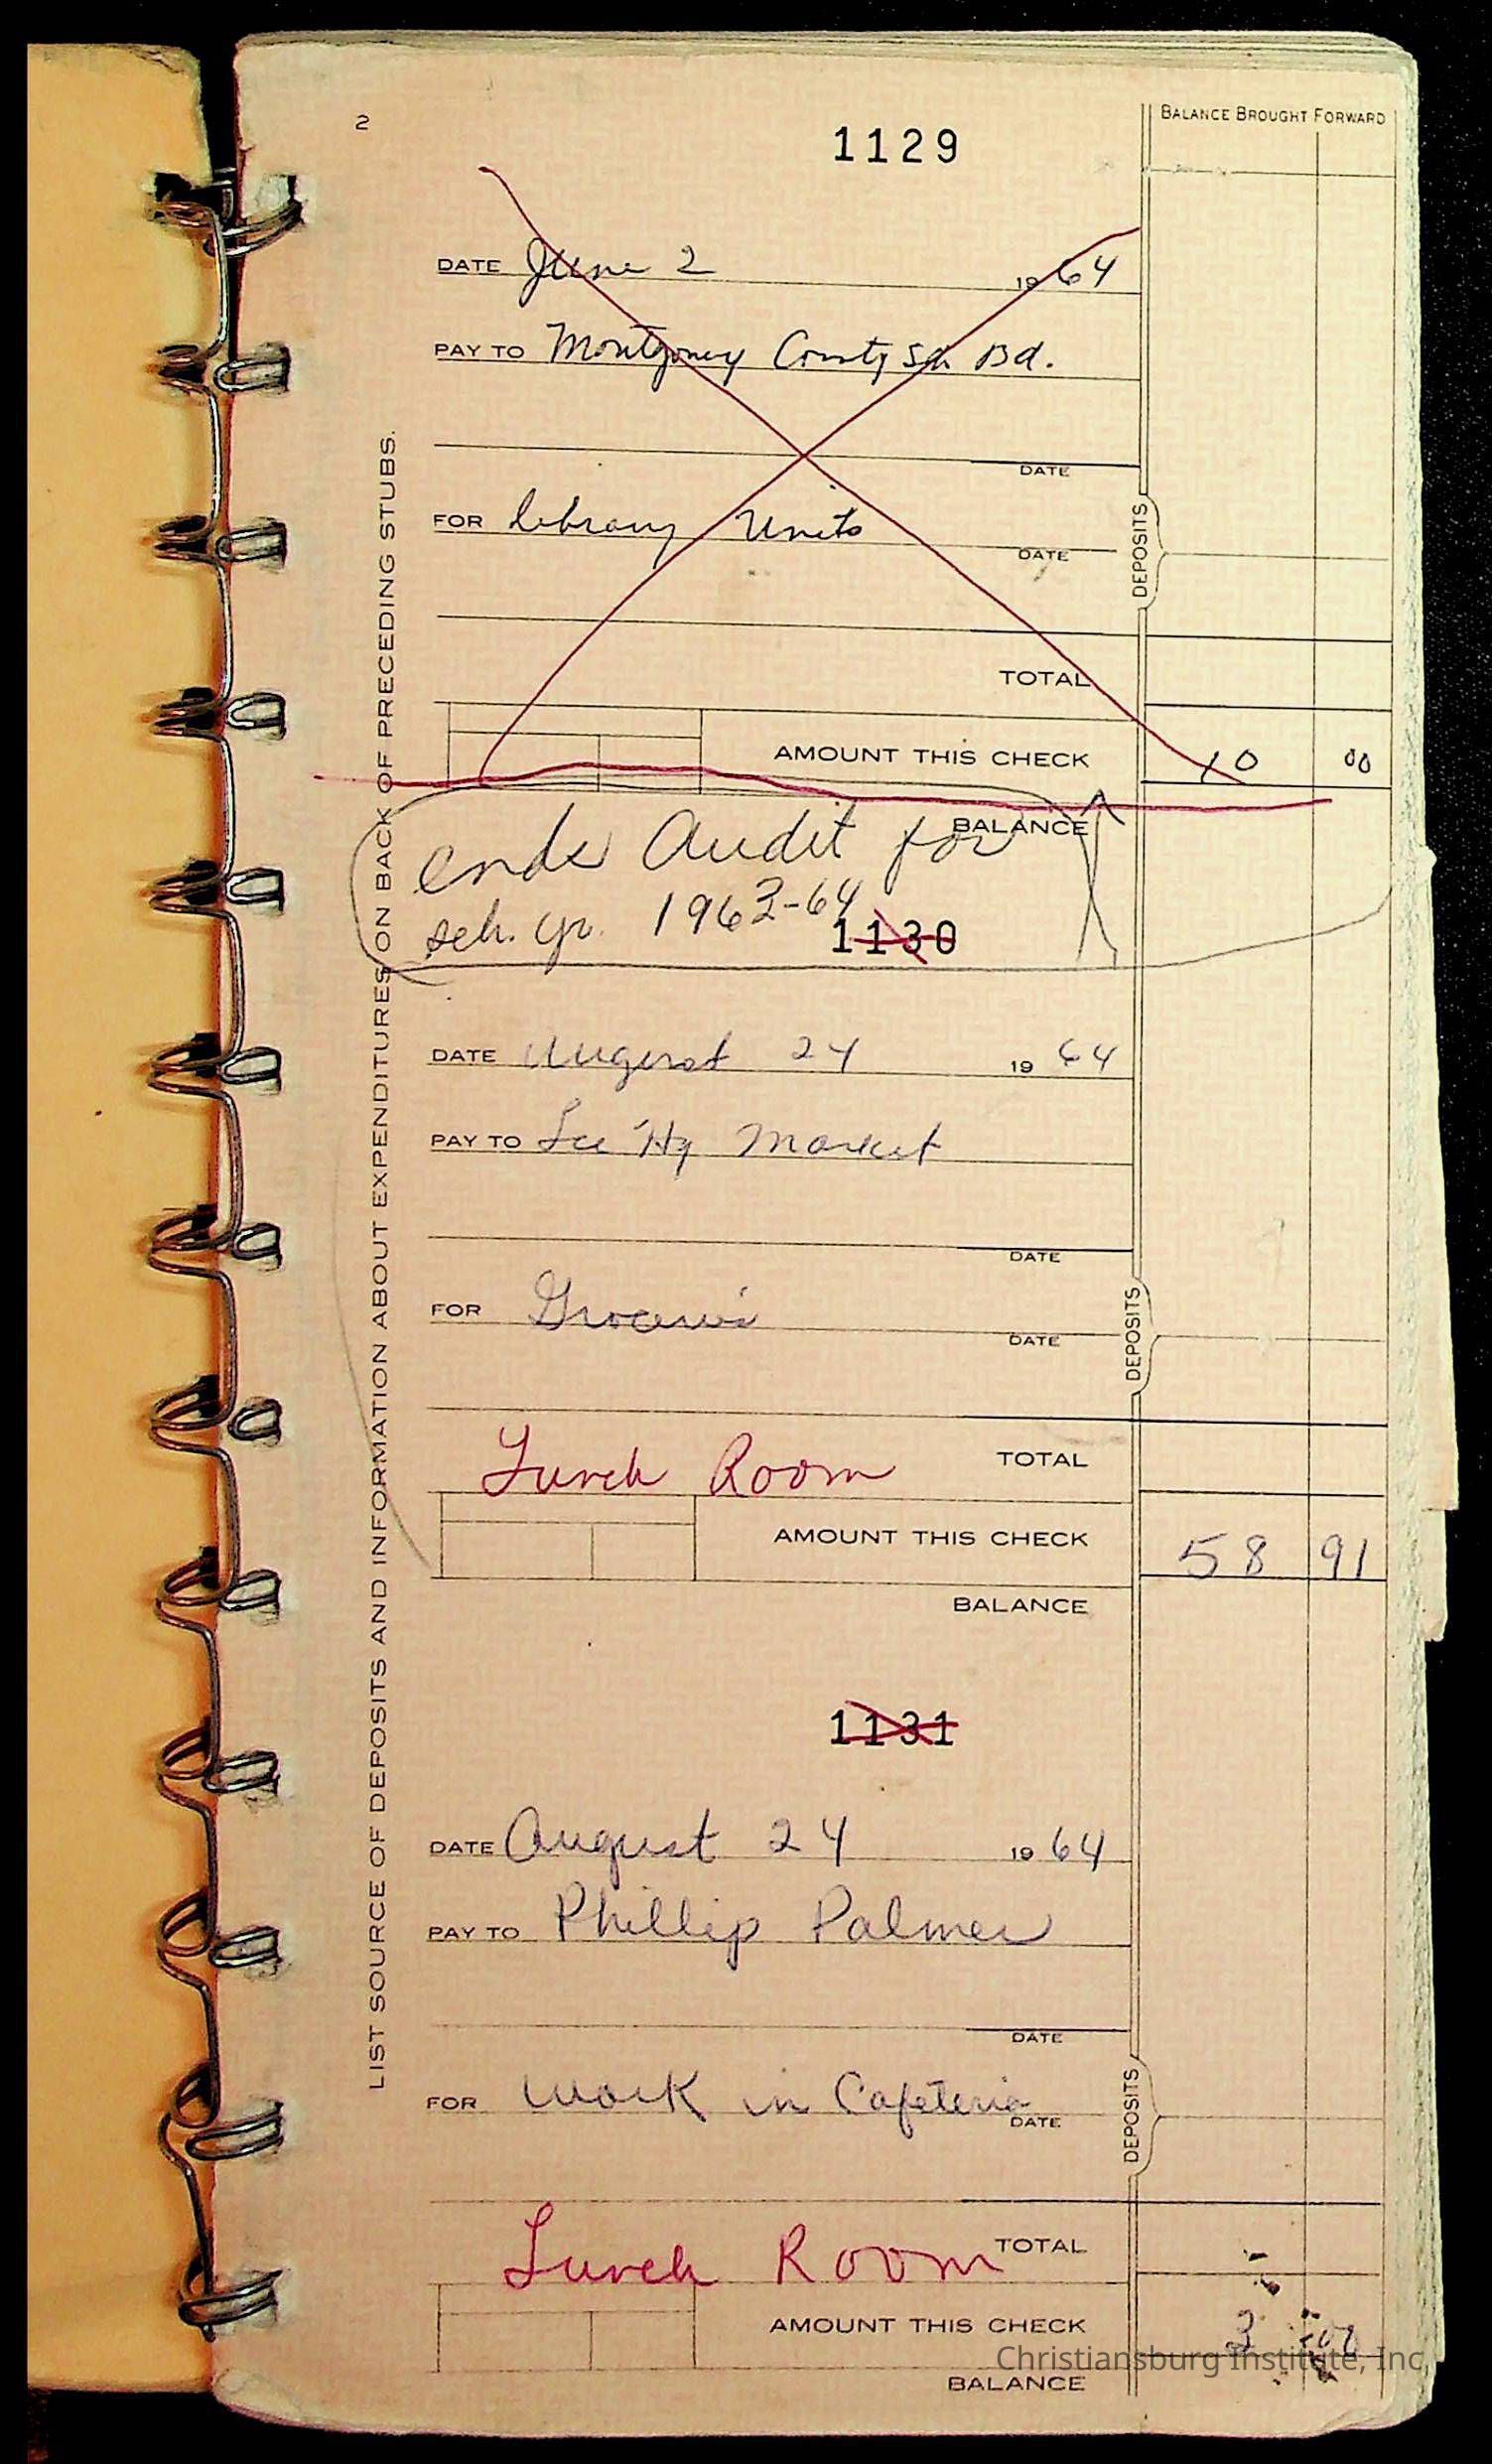 2
1129
BALANCE BROUGHT FORWARD
DATE June 2 1964
PAY TO Montgomery County Sch Bd.
DATE
FOR library Units
DATE
DEPOSITS
TOTAL
AMOUNT THIS CHECK 10 00
BALANCE
ends Audit for
sch. yr. 1963-64
1130
DATE August 24 1964
PAY TO Market
DATE
FOR Groceries
DATE
DEPOSITS
Lunch Room TOTAL
AMOUNT THIS CHECK 58 91
BALANCE
1131
DATE August 24 1964
PAY TO Phillip Palmer
DATE
FOR Work in Cafeteria
DATE
DEPOSITS
Lunch Room TOTAL
AMOUNT THIS CHECK 3 00
BALANCE
LIST SOURCE OF DEPOSITS AND INFORMATION ABOUT EXPENDITURES ON BACK OF PRECEDING STUBS.
Christiansburg Institute, Inc.